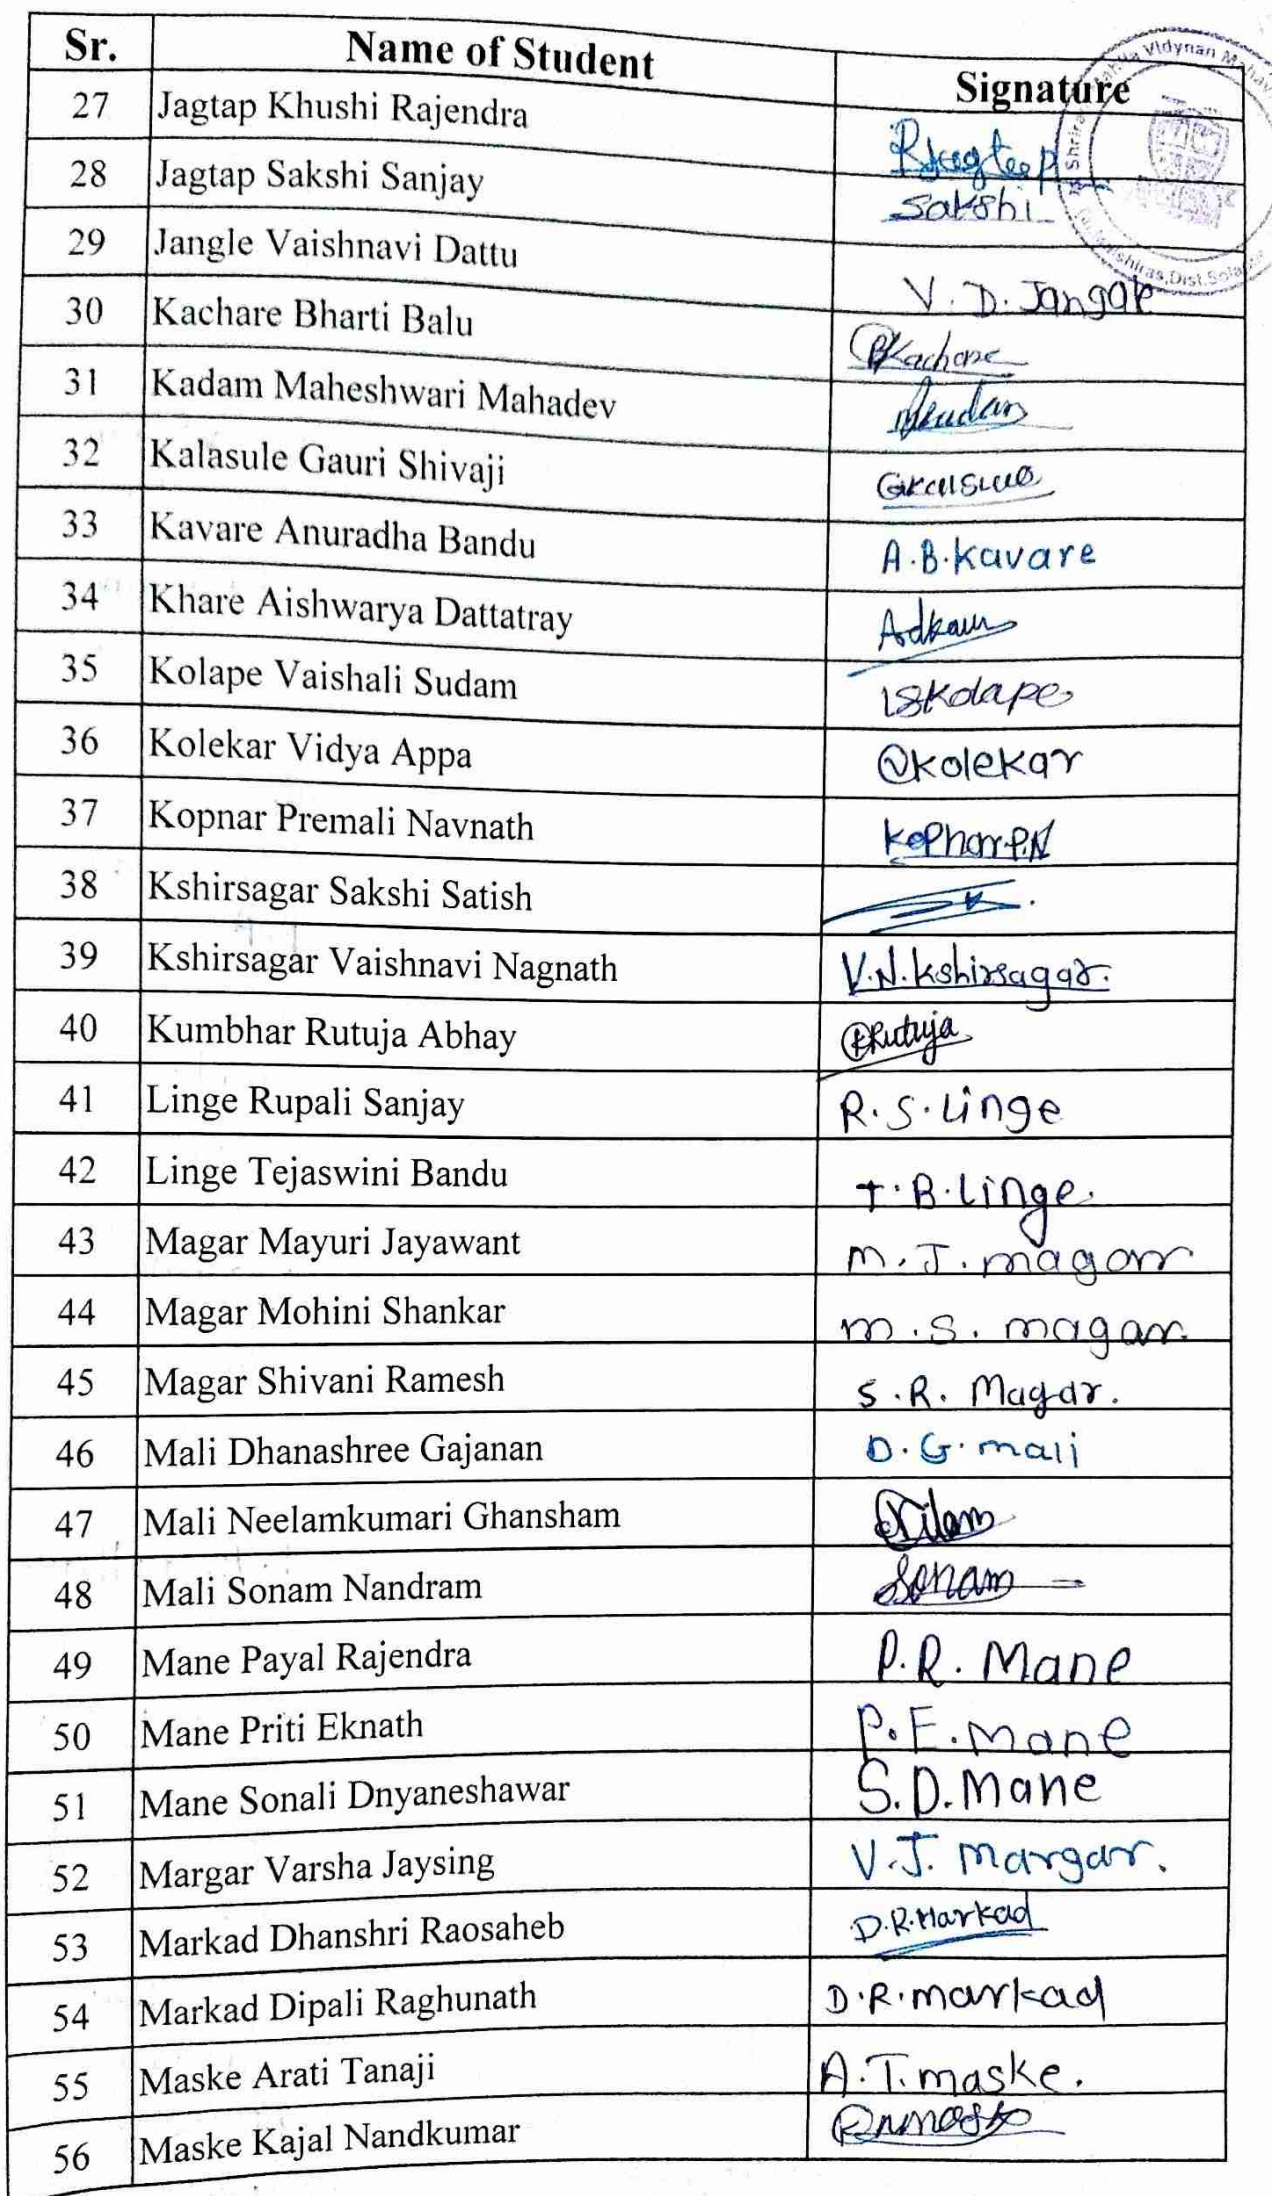 Sr. Name of Student Signature
27 Jagtap Khushi Rajendra
28 Jagtap Sakshi Sanjay Sakshi
29 Jangle Vaishnavi Dattu V. D. Jangale
30 Kachare Bharti Balu BKachare
31 Kadam Maheshwari Mahadev
32 Kalasule Gauri Shivaji
33 Kavare Anuradha Bandu A.B.Kavare
34 Khare Aishwarya Dattatray
35 Kolape Vaishali Sudam VSKolape
36 Kolekar Vidya Appa Vkolekar
37 Kopnar Premali Navnath Kopnar P.N
38 Kshirsagar Sakshi Satish
39 Kshirsagar Vaishnavi Nagnath V.N.Kshirsagar.
40 Kumbhar Rutuja Abhay Rutuja
41 Linge Rupali Sanjay R.S.Linge
42 Linge Tejaswini Bandu T.B.Linge.
43 Magar Mayuri Jayawant M.J.magar
44 Magar Mohini Shankar m.s.magar
45 Magar Shivani Ramesh S.R. Magar.
46 Mali Dhanashree Gajanan D.G.mali
47 Mali Neelamkumari Ghansham Nilam
48 Mali Sonam Nandram Sonam
49 Mane Payal Rajendra P.R. Mane
50 Mane Priti Eknath P.E.Mane
51 Mane Sonali Dnyaneshawar S.D.Mane
52 Margar Varsha Jaysing V.J. Margar.
53 Markad Dhanshri Raosaheb D.R.Markad
54 Markad Dipali Raghunath D.R.markad
55 Maske Arati Tanaji A.T.maske.
56 Maske Kajal Nandkumar